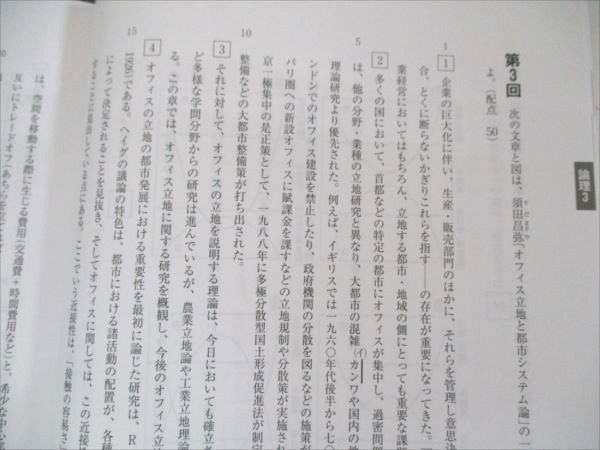 論理3
第3回 次の文章と図は、須田昌弥「オフィス立地と都市システム論」の一
よ。(配点 50)
1 企業の巨大化に伴い、生産・販売部門のほかに、それらを管理し意思決
合、とくに断らないかぎりこれらを指す――の存在が重要になってきた。
業経営においてはもちろん、立地する都市・地域の側にとっても重要な課題
2 多くの国において、首都などの特定の都市にオフィスが集中し、過密問題
は、他の分野・業種の立地研究と異なり、大都市の混雑(イ)カンワや国内の地
理論研究より優先された。例えば、イギリスでは一九六〇年代後半から七〇
ンドンでのオフィス建設を禁止したり、政府機関の分散を図るなどの施策が
パリ圏への新設オフィスに賦課金を課すなどの立地規制や分散策が実施され
京一極集中の是正策として、一九八八年に多極分散型国土形成促進法が制定
整備などの大都市整備策が打ち出された。
3 それに対して、オフィスの立地を説明する理論は、今日においても確立さ
ど多様な学問分野からの研究は進んでいるが、農業立地論や工業立地理論
る。この章では、オフィス立地に関する研究を概観し、今後のオフィス立地
4 オフィスの立地の都市発展における重要性を最初に論じた研究は、R
1926)である。ヘイグの議論の特色は、都市における諸活動の配置が、各種
によって決定されることを見抜き、そしてオフィスに関しては、この近接性
ここでいう近接性は、「接触の容易さ
は、空間を移動する際に生じる費用(交通費+時間費用など)と、希少な中心部
互いにトレードオフ(あちらを立て